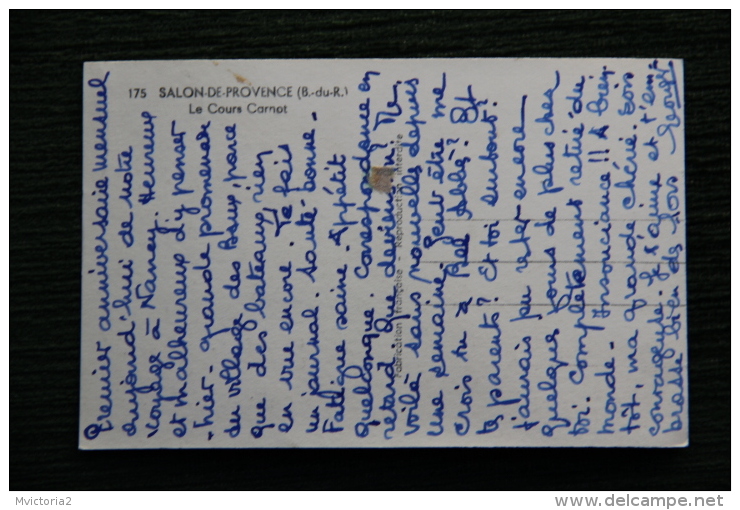 175 SALON-DE-PROVENCE (B.-du-R.)
Le Cours Carnot
Fabrication française - Reproduction interdite
Premier anniversaire mensuel
aujourd'hui de notre
voyage à Nancy. Heureux
et malheureux d'y penser
-hier- grande promenade
du village des Baux, parce
que des bateaux rien
en vue encore. Je fais
un journal. Santé-bonne-
Fatigue saine. Appétit
quelconque. Correspondance en
retard. Que deviens
voilà sans nouvelles depuis
une semaine. Peut être me
crois tu à Bel Abbès? Et
tes parents? Et toi surtout?
Jamais pu rester encore
quelques jours de plus chez
toi. Complètement retiré du
monde - Insouciance!! A bien-
tôt, ma grande chérie. Bon
courage. Je t'aime et t'em-
brasse bien de loin
Mvictoria2
www.delcampe.net